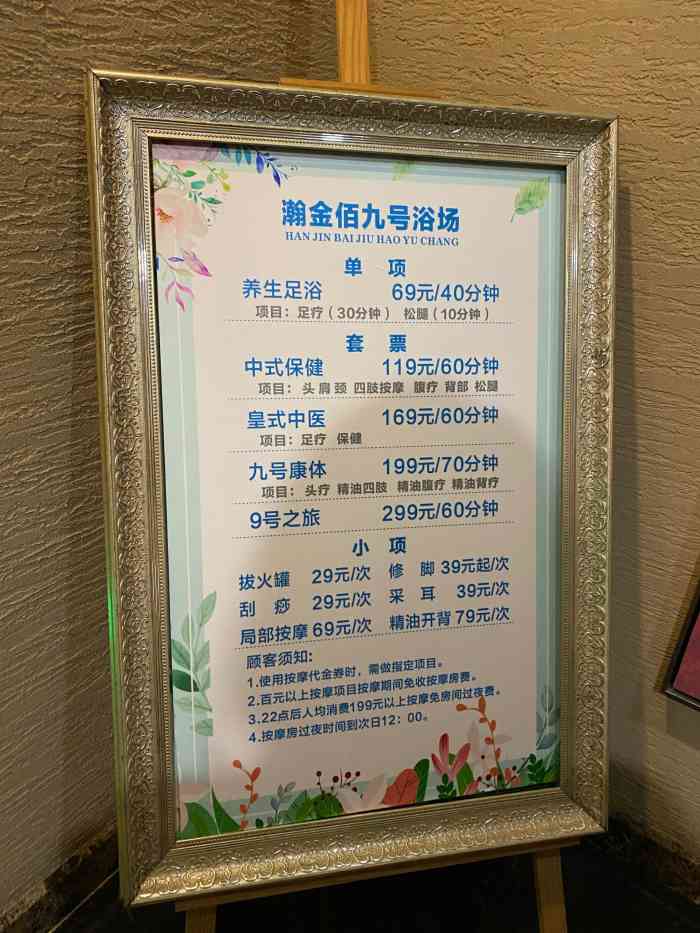 瀚金佰九号浴场
HAN JIN BAI JIU HAO YU CHANG
单 项
养生足浴 69元/40分钟
项目：足疗（30分钟） 松腿（10分钟）
套 票
中式保健 119元/60分钟
项目：头 肩 颈 四肢按摩 腹疗 背部 松腿
皇式中医 169元/60分钟
项目：足疗 保健
九号康体 199元/70分钟
项目：头疗 精油四肢 精油腹疗 精油背疗
9号之旅 299元/60分钟
小 项
拔火罐 29元/次 修 脚 39元起/次
刮 痧 29元/次 采 耳 39元/次
局部按摩 69元/次 精油开背 79元/次
顾客须知:
1.使用按摩代金券时，需做指定项目。
2.百元以上按摩项目按摩期间免收按摩房费。
3.22点后人均消费199元以上按摩免房间过夜费。
4.按摩房过夜时间到次日12：00。